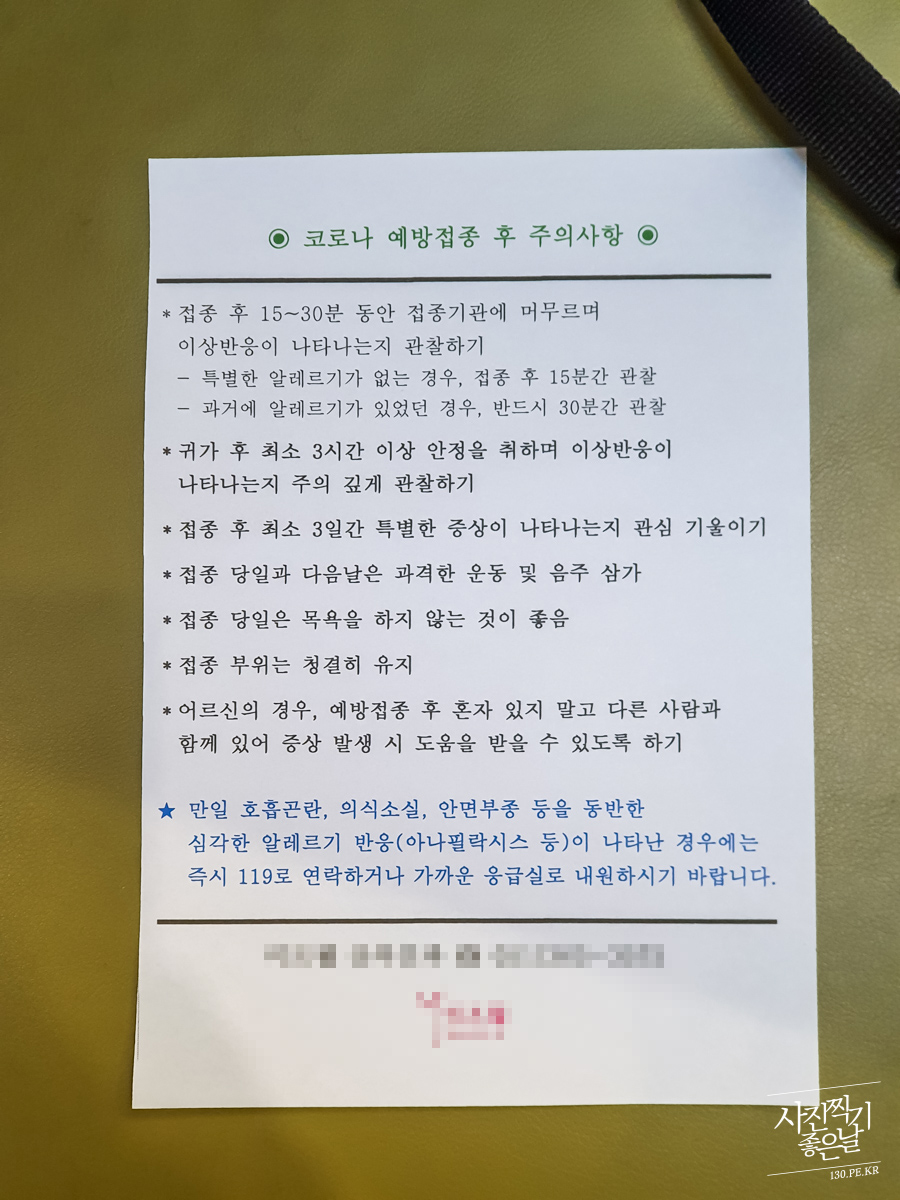 ◉ 코로나 예방접종 후 주의사항 ◉
* 접종 후 15~30분 동안 접종기관에 머무르며
이상반응이 나타나는지 관찰하기
- 특별한 알레르기가 없는 경우, 접종 후 15분간 관찰
- 과거에 알레르기가 있었던 경우, 반드시 30분간 관찰
* 귀가 후 최소 3시간 이상 안정을 취하며 이상반응이
나타나는지 주의 깊게 관찰하기
* 접종 후 최소 3일간 특별한 증상이 나타나는지 관심 기울이기
* 접종 당일과 다음날은 과격한 운동 및 음주 삼가
* 접종 당일은 목욕을 하지 않는 것이 좋음
* 접종 부위는 청결히 유지
* 어르신의 경우, 예방접종 후 혼자 있지 말고 다른 사람과
함께 있어 증상 발생 시 도움을 받을 수 있도록 하기
★ 만일 호흡곤란, 의식소실, 안면부종 등을 동반한
심각한 알레르기 반응(아나필락시스 등)이 나타난 경우에는
즉시 119로 연락하거나 가까운 응급실로 내원하시기 바랍니다.
사진찍기
좋은날
130.PE.KR